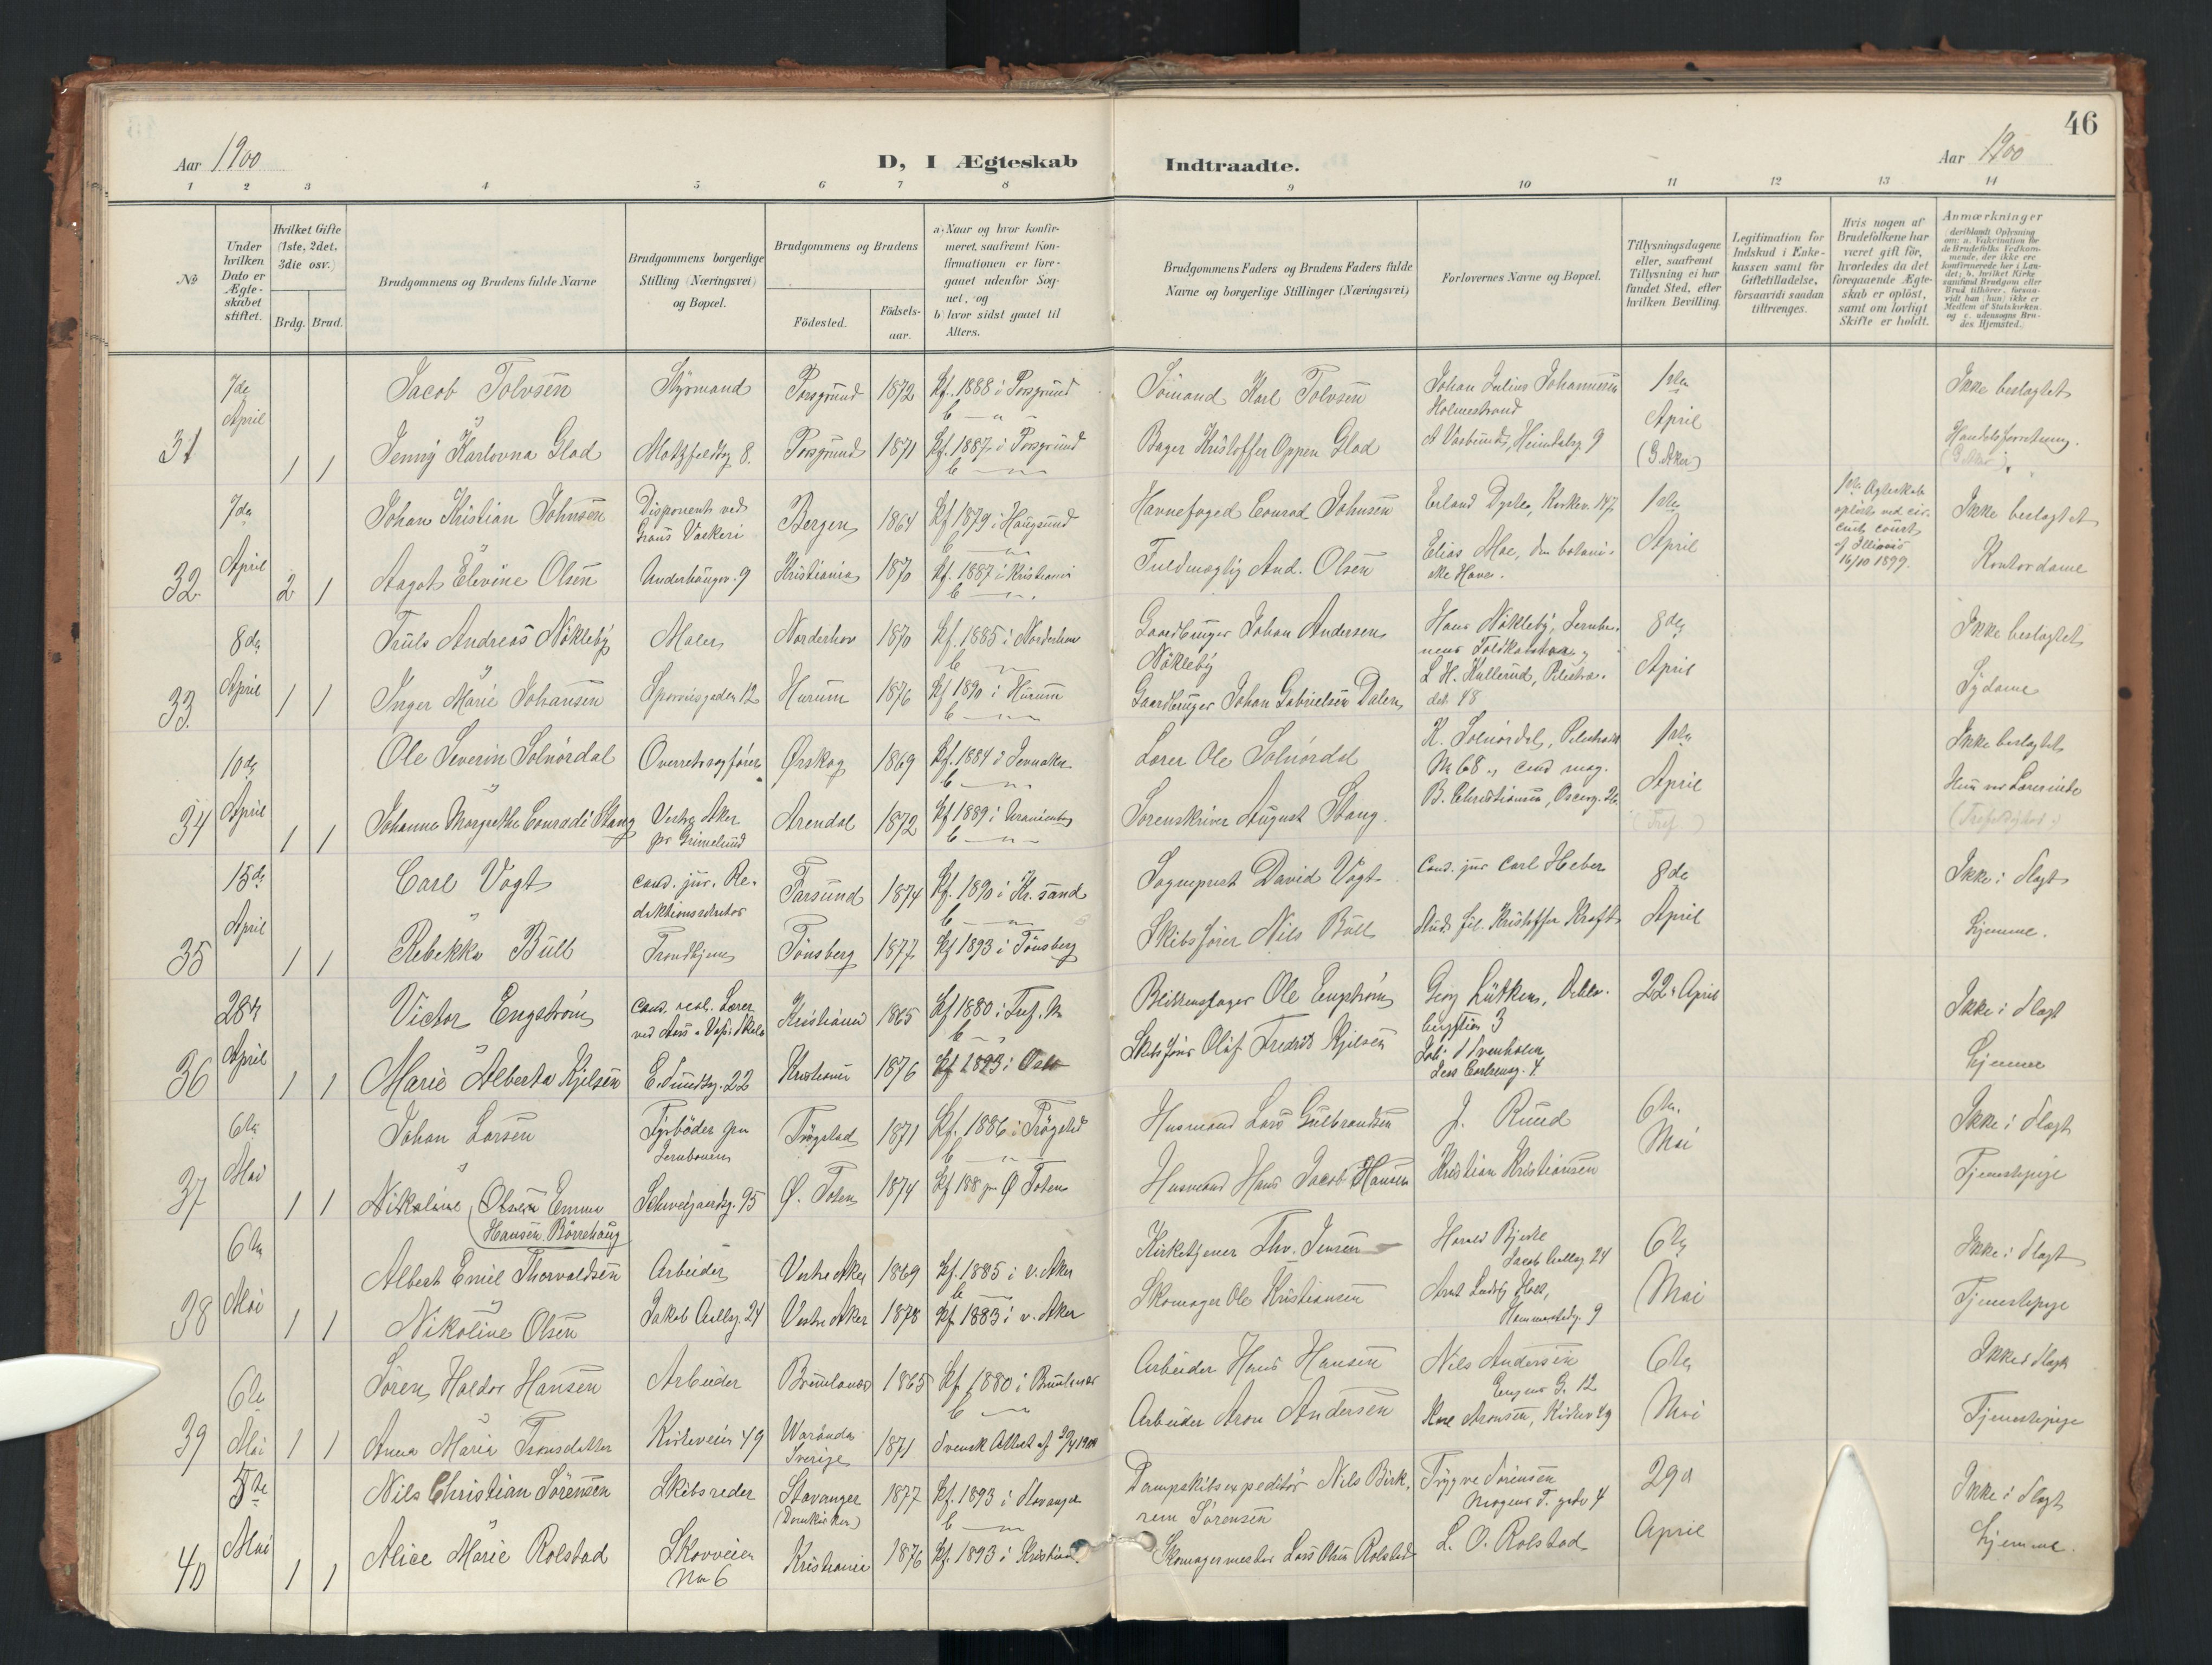 46
Aar 1900
D, I Ægteskab Indtraadte.
Aar 1900
1 2 3 4 5 6 7 8 9 10 11 12 13 14
No
Under hvilken Dato er Ægteskabet stiftet.
Hvilket Gifte (1ste, 2det, 3die osv.)
Brdg. Brud.
Brudgommens og Brudens fulde Navne
Brudgommens borgerlige Stilling (Næringsvei) og Bopæl.
Brudgommens og Brudens
Fødested.
Fødselsaar.
a) Naar og hvor konfirmeret, saafremt Konfirmationen er foregaaet udenfor Sognet, og
b) hvor sidst gaaet til Alters.
Brudgommens Faders og Brudens Faders fulde Navne og borgerlige Stillinger (Næringsvei)
Forlovernes Navne og Bopæl.
Tillysningsdagene eller, saafremt Tillysning ei har fundet Sted, efter hvilken Bevilling.
Legitimation for Indskud i Enkekassen samt for Giftetilladelse, forsaavidt saadan tiltrænges.
Hvis nogen af Brudefolkene har været gift før, hvorledes da det foregaaende Ægteskab er opløst, samt om lovligt Skifte er holdt.
Anmærkninger
31
7de April
1 1
Jacob Tolvsen
Styrmand
Porsgrund
1872
Kf. 1888 i Porsgrund
Sömand Karl Tolvsen
Johan Julius Johannesen
Holmestrand
1ste April
(G. Aker)
Ikke beslagtet
Jenny Karlovna Glad
Motzfeldtsg 8.
Porsgrund
1871
Kf. 1887 i Porsgrund
Bager Kristoffer Oppen Glad
Heimdalsg 9
32
7de April
2 1
Johan Kristian Johnsen
Disponent ved
Graus Vaskeri
Bergen
1864
Kf 1879 i Haugsund
Havnefoged Conrad Johnsen
Kirkev. 147
1ste April
1ste Ægteskab
opløst ved cir-
cuit court
of Illinois
16/10 1899.
Ikke beslagtet
Aagot Elevine Olsen
Underhaugsv. 9
Kristiania
1870
Kf. 1887 i Kristiania
Fuldmægtig And. Olsen
Elias Moe, den botani-
ske Have.
Kontordame
33.
8de April
1 1
Truls Andreas Nökleby
Maler
Norderhov
1870
Kf. 1885 i Norderhov
Gaardbruger Johan Andersen
Nökleby
Hans Nökleby, Jernba-
nens Toldkontor
8de April
Ikke beslagtet
Inger Marie Johansen
Sporveisgaden 12
Hurum
1876
Kf 1890 i Hurum
Gaardbruger Johan Gabrielsen Dalen
L. H. Kullerud, Pilestræ-
det 48
Sydame
34
10de April
1 1
Ole Severin Solnördal
Overretssagfører
Ørskog
1869
Kf. 1884 i Jevnaker
Lærer Ole Solnördal
K. Solnördal, Pilestrædet
No 68, cand mag.
1ste April
Ikke beslagtet
Johanne Margrethe Conradi Stang
Vestre Aker
pr Grimelund
Arendal
1872
Kf 1889 i Uranienborg
Sorenskriver August Stang.
B. Christiansen, Oscarsg. 26
35
15de April
1 1
Carl Vogt
cand. jur. Re-
daktionssekretær
Farsund
1874
Kf. 1890 i Kr. sand
Sogneprest David Vogt
Cand. jur Carl Heber
8de April
Ikke i Slægt
Rebekka Bull
Trondhjem
Tönsberg
1877
Kf 1893 i Tönsberg
Skibsfører Nils Bull
Stud. fil. Kristoffer Kraft
hjemme.
36
28de April
1 1
Victor Engström
cand. real. Lærer
Kristiania
1865
Kf 1880 i Tref. M
Blikkenslager Ole Engström
Georg Lütken
22 April
Ikke i Slægt
Marie Alberta Kjelsen
E. Sundtsg. 22
Kristiania
1876
Kf 1893 i Oslo
Skibsfører Olaf Fredrik Kjelsen
hjemme
37
6te Mai
1 1
Johan Larsen
Fyrböder paa
Jernbanen
Trögstad
1871
Kf. 1886 i Trögstad
Husmand Lars Gulbrandsen
J. Ruud
6te Mai
Ikke i Slægt
Nikoline Olsen Emma
Hansen Börrehaug
Schweigaardsg. 95
Ø. Toten
1874
Husmand Hans Jacob Hansen
Kristian Kristiansen
Tjenestepige
38
6te Mai
1 1
Albert Emil Thorvaldsen
Arbeider
Vestre Aker
1869
Kf. 1885 i v. Aker
Kirketjener Thv. Jensen
Harald Bjerke
Jacob Aallsg 24
6te Mai
Ikke i Slægt
Nikoline Olsen
Jakob Aallsg. 24
Vestre Aker
1878
Kf 1883 i v. Aker
Skomager Ole Kristiansen
Hammerstadg. 9
Tjenestepige
39
6te Mai
1 1
Sören Haldor Hansen
Arbeider
Brunlanæs
1865
Kf. 1880 i Brunlanæs
Arbeider Hans Hansen
Nils Andersen
Eugenis G. 12
6te Mai
Ikke i Slægt
Anna Maria Aronsdatter
Kirkeveien 49
Sverige
1871
Svensk Attest af
Arbeider Aron Andersen
Karl Aronsen, Kirkev 49
Tjenestepige
40
5te Mai
1 1
Nils Christian Sörensen
Skibsreder
Stavanger
(Domkirken)
1877
Kf. 1893 i Stavanger
Dampskibsexpeditör Nils Birk.
rem Sörensen
Trygve Sörensen
Mogens T. gade 4
29d April
Ikke i Slægt
Alice Marie Rolstad
Skovveien
No 6
Kristiania
1876
Kf. 1893 i Kristiania
Skomagermester Lars Olsen Rolstad
L. O. Rolstad
hjemme.